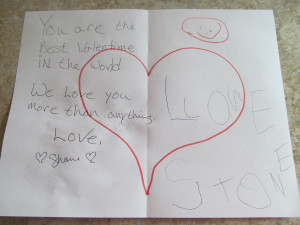 You are the
Best Valentine
IN the World
We Love you
more than anything.
Love,
♡ Shani ♡
LLOWE
STONE